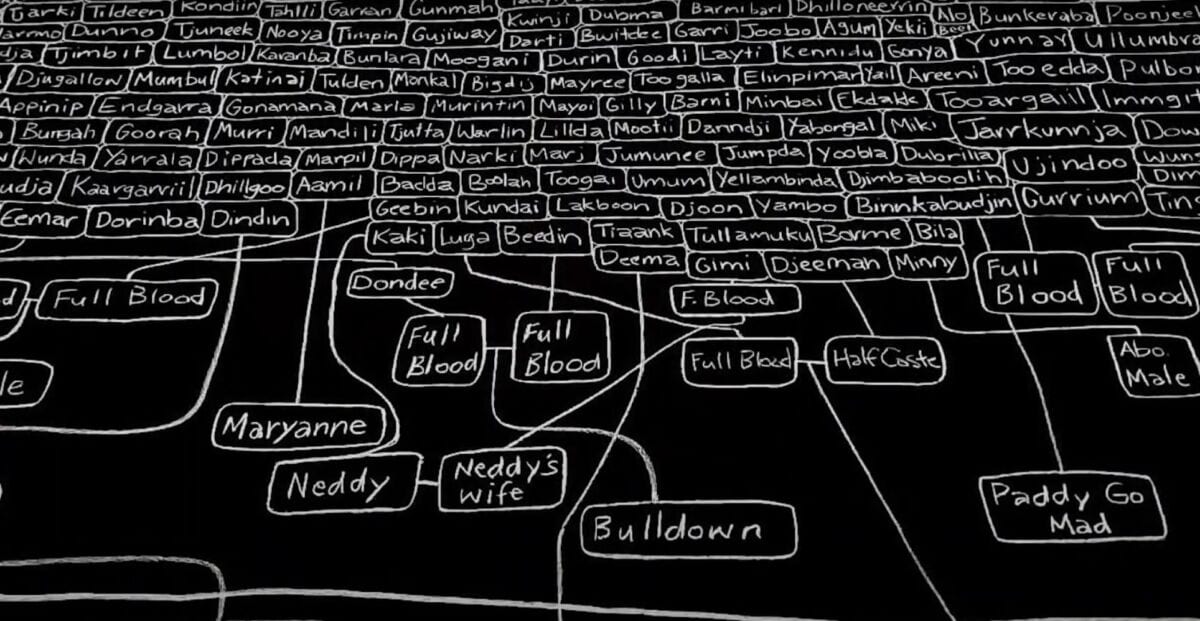 Tjarki Tildeen Kondiin Tahlli Garran Gunmah Barmibarl Dhilloneerrin
Dunno Tjuneek Nooya Timpin Gujiway Kwinji Dubma Garri Joobo Agum Yekii Alo Bunkeraba Poonjee
Tjimbit Lumbol Karanba Bunlara Moogani Darti Bwitdee Durin Goodi Layti Kennidu Gonya Yunnay Ullumbra
Djugallow Mumbul Katinaj Tulden Monkal Bigdij Mayree Toogalla Elinpimar Yail Areeni Tooedda Pulbo
Appinip Endgarra Gonamana Marla Murintin Mayoi Gilly Barni Minbai Ekdakk Tooargaiil Immgi
Bungah Goorah Murri Mandilji Tjutta Warlin Lillda Mootii Danndji Yabongal Miki Jarrkunnja Dow
Wunda Yarrala Dippada Marpil Dippa Narki Marj Jumunee Jumpda Yoobla Dubrilla Ujindoo Wun
udja Kaarganriil Dhillgoo Aamil Badda Boolah Toogai Umum Yellambinda Djimbaboolin Dim
Eemar Dorinba Dindin Geebin Kundai Lakboon Djoon Yambo Binnkabudjin Gurrium Tin
Kaki Luga Beedin Tiaank Tullamuku Barme Bila
Deema Gimi Djeemah Minny
Dondee
F. Blood
Full Blood
Full
Blood
Full
Blood
Full
Blood
Full
Blood
Full Blood
Half Caste
Abo.
Male
le
Maryanne
Neddy
Neddy's
Wife
Bulldown
Paddy Go
Mad